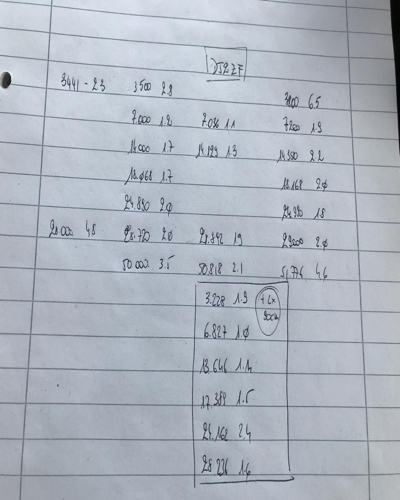 DJ2EF
3441 - 23 3500 28 3800 65
7.000 1.2 7.036 1.1 7200 1.9
14.000 1.7 14.129 13 14.350 2.2
18.068 1.7 18.168 20
24.830 20 24.980 18
28.000 48 28.720 20 28.842 19 29000 20
50.000 3.5 50.818 2.1 51.776 4.6
3.228 1.9
6.827 1.0
13.646 1.14
17.389 1.5
24.162 2.4
28.236 1.6